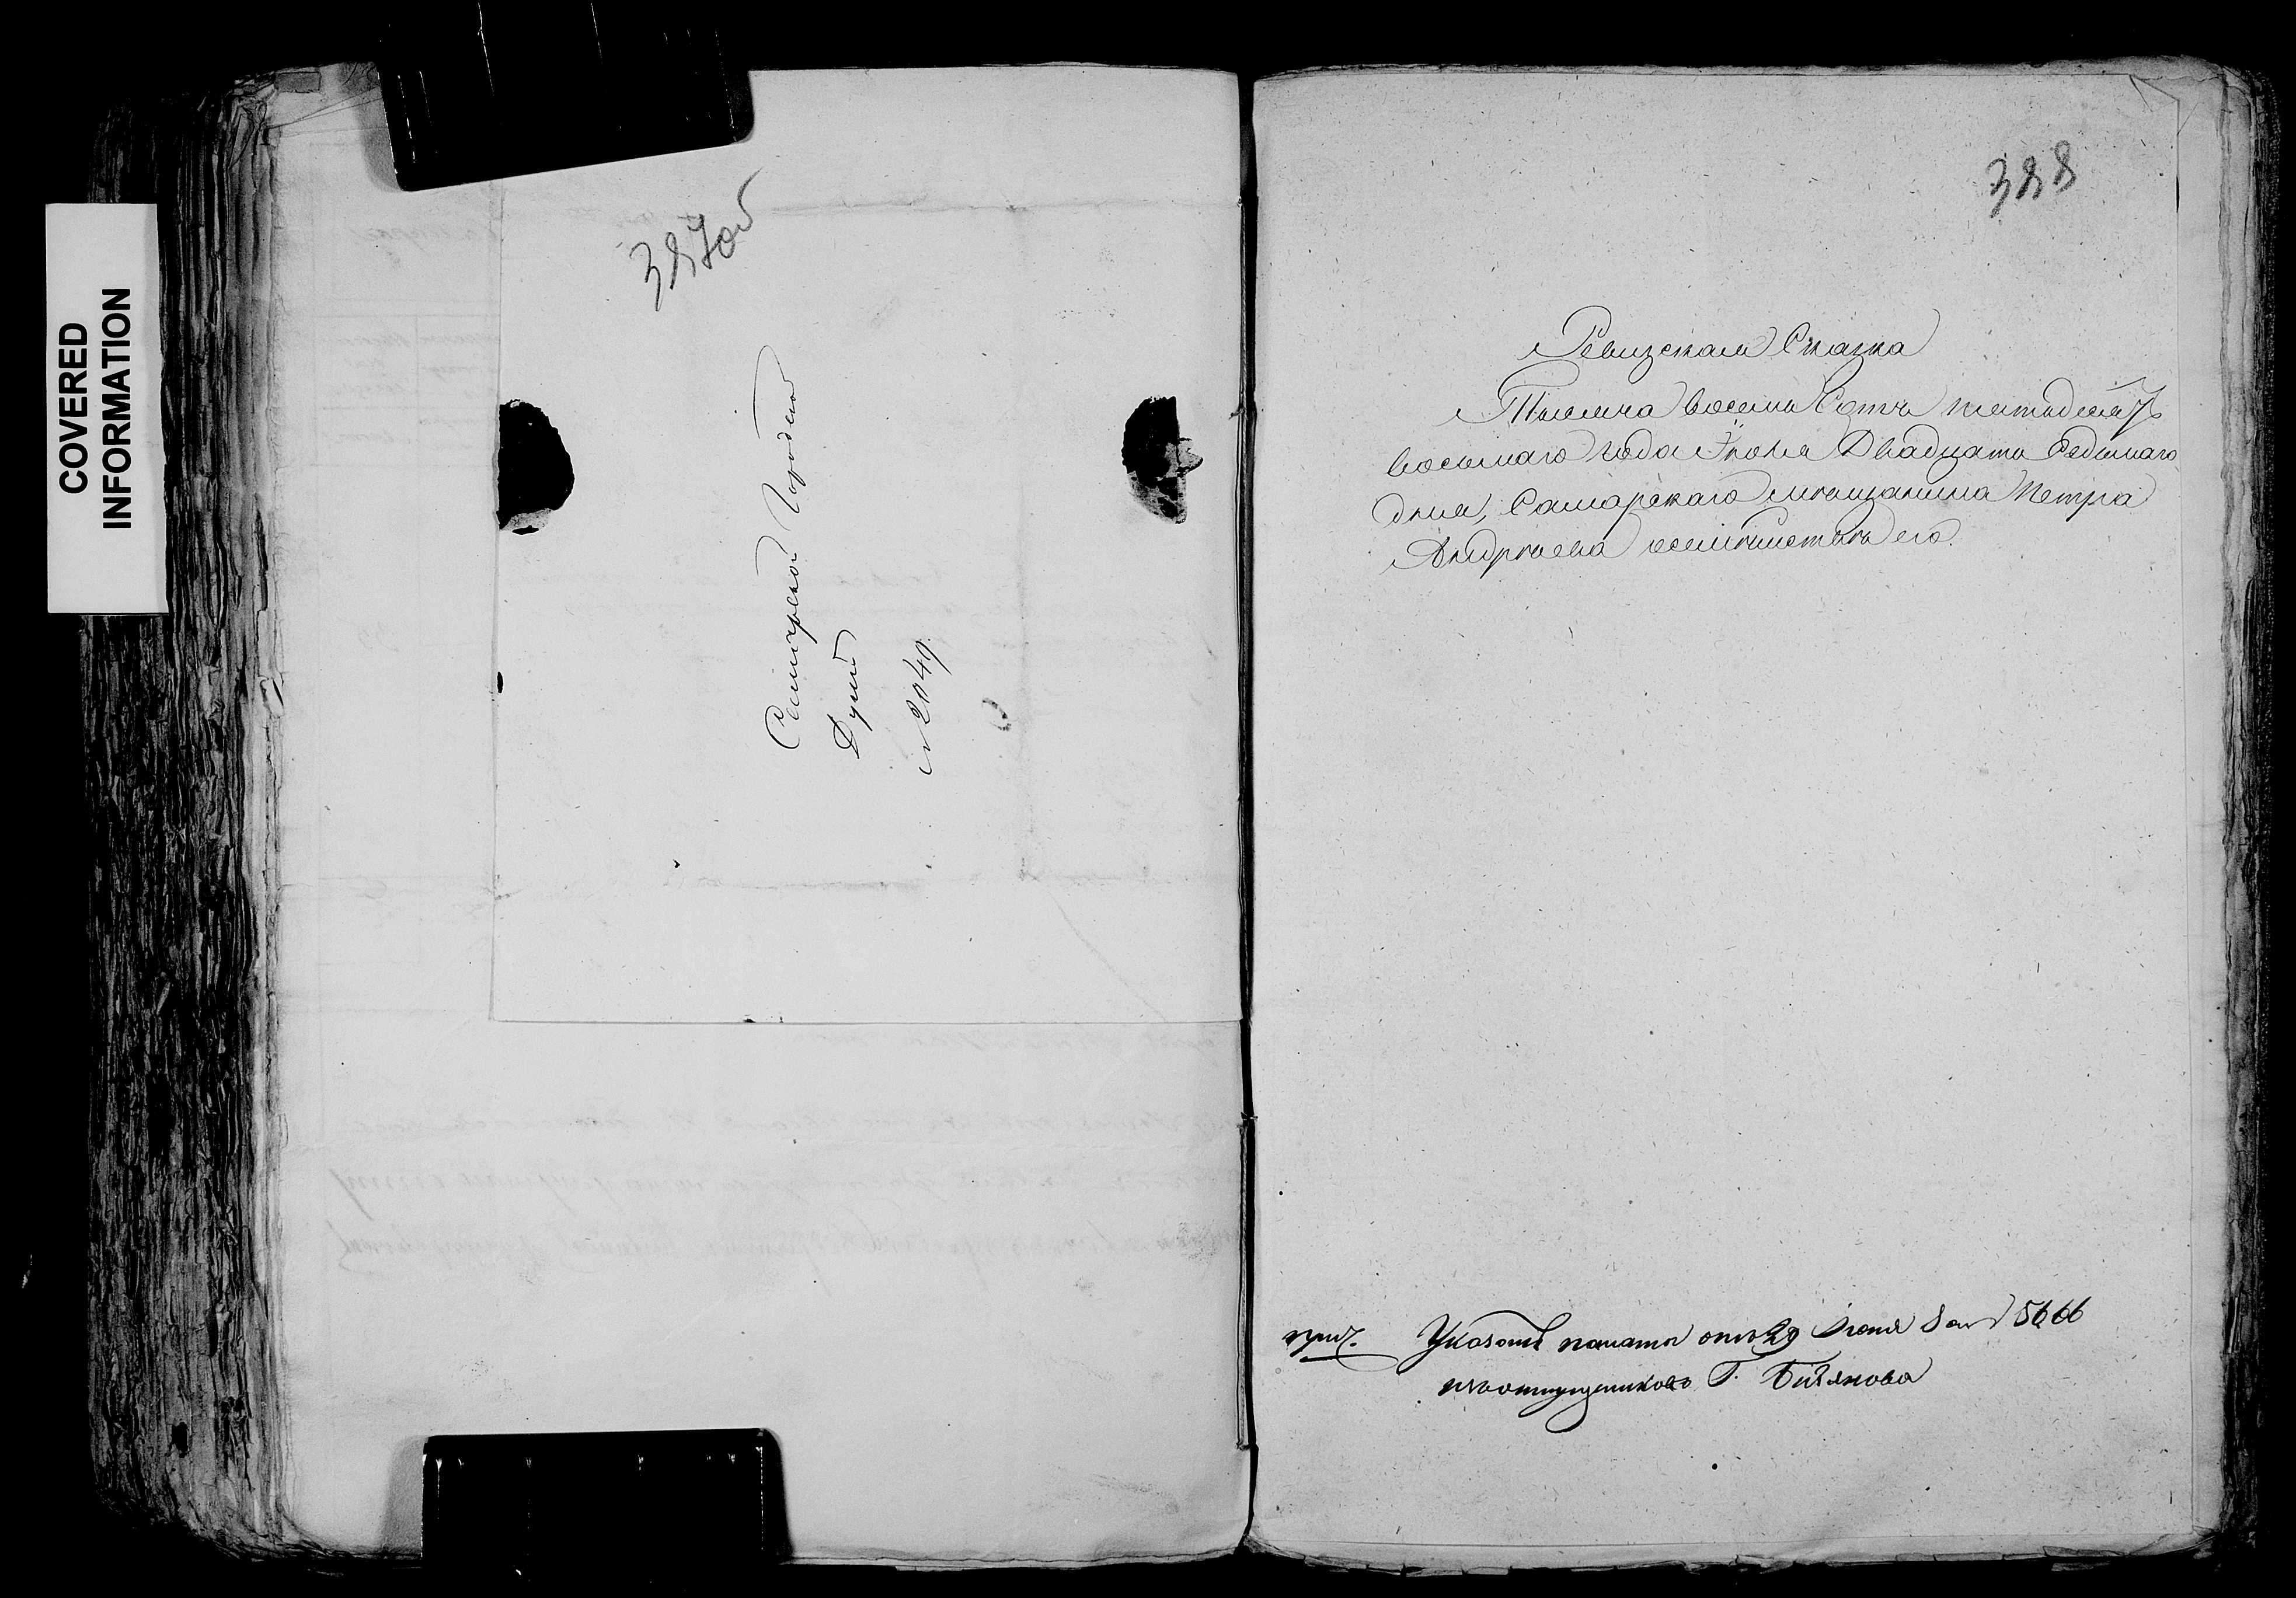 COVERED
INFORMATION
387об
Самарской Городской
Думе
№ 2049
388
Ревизская Сказка
Тысяча восемь Сотъ пятьдесятъ
восьмаго года Iюня Двадцать Седьмаго
дня, Самарскаго мѣщанина Петра
Андрѣева и семѣйства его.
Указъ палаты отъ 29 Iюня за № 5666